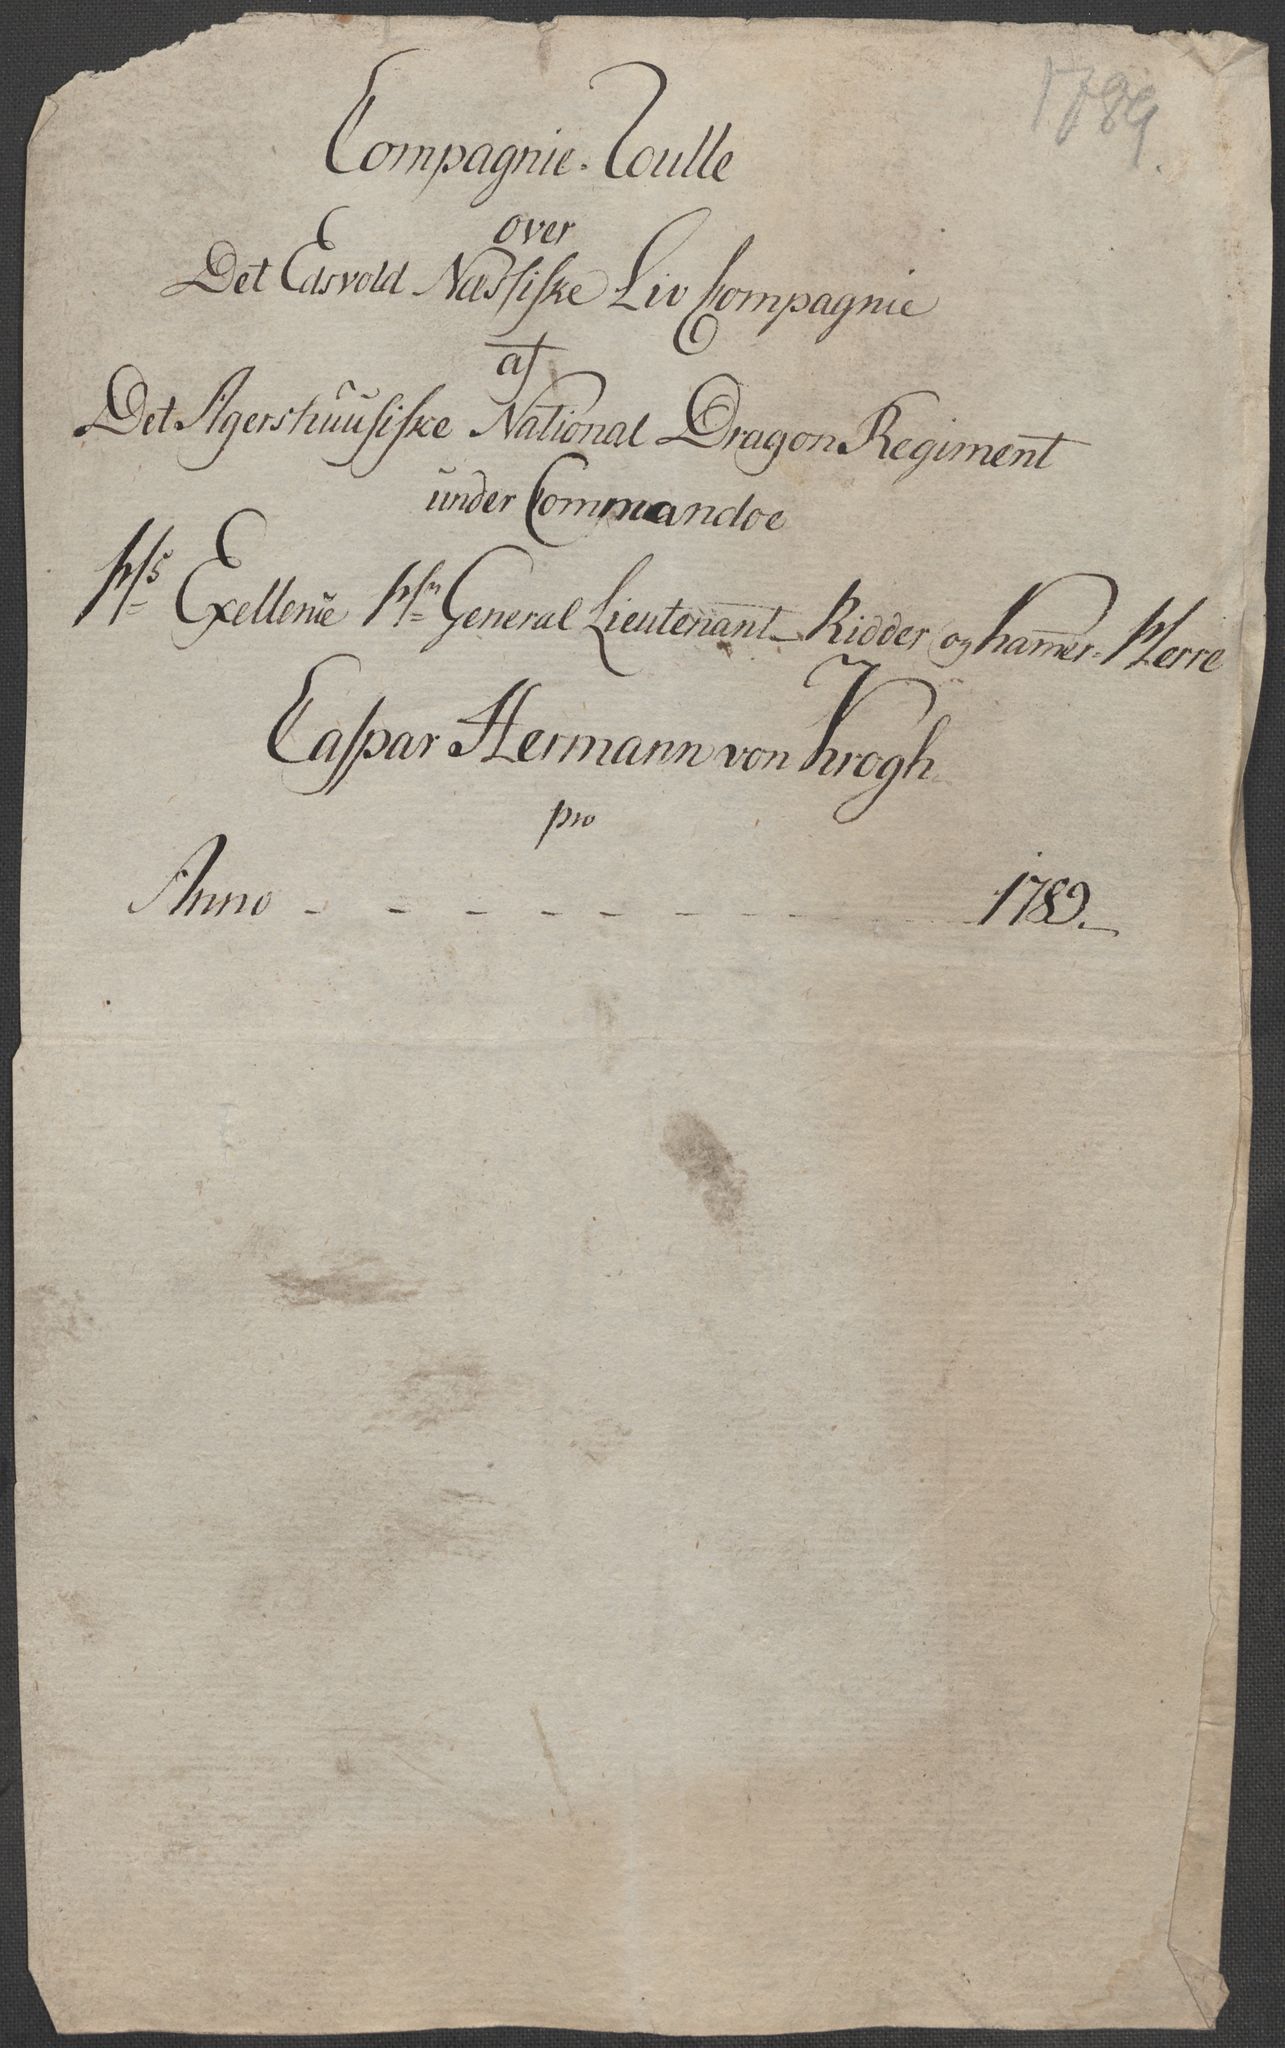 1789.
Compagnie-Roulle
over
Det Edsvold Næssiske Liv Compagnie
af
Det Agershuusiske National Dragon Regiment
under Commandoe
Hs Exellence Hr General Lieutenant Ridder og Kamer-Herre
Caspar Hermann von Krogh
pro
Anno - - - - - - - 1789.